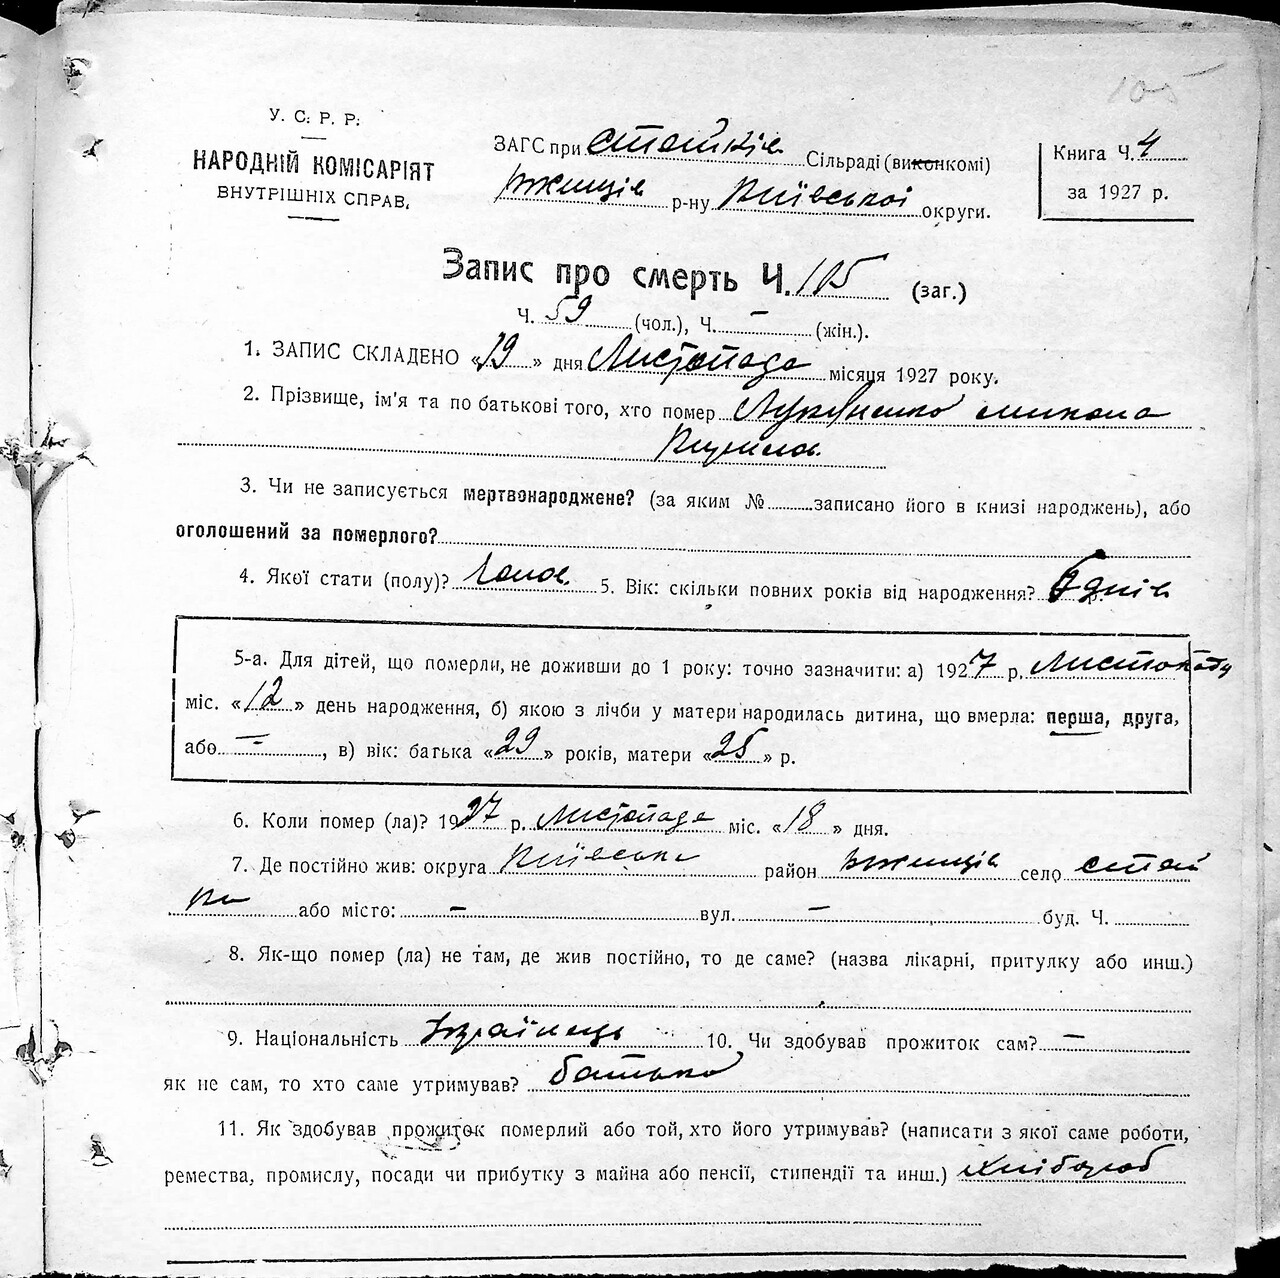 105
У. С. Р. Р.
НАРОДНІЙ КОМІСАРІЯТ
ВНУТРІШНІХ СПРАВ.
ЗАГС при Стайків Сільраді (виконкомі)
Ржищів р-ну Київської округи.
Книга Ч. 4
за 1927 р.
Запис про смерть Ч. 105 (заг.)
Ч. 59 (чол.), Ч. – (жін.).
1. ЗАПИС СКЛАДЕНО «19» дня Листопада місяця 1927 року.
2. Прізвище, ім'я та по батькові того, хто помер Лукяненко Микола
Кирилов.
3. Чи не записується мертвонароджене? (за яким № записано його в книзі народжень), або
оголошений за померлого?
4. Якої стати (полу)? Чолов. 5. Вік: скільки повних років від народження? 6 днів
5-а. Для дітей, що померли, не доживши до 1 року: точно зазначити: а) 1927 р. Листопаду
міс. «12» день народження, б) якою з лічби у матери народилась дитина, що вмерла: перша, друга,
або –, в) вік: батька «29» років, матери «25» р.
6. Коли помер (ла)? 1927 р. Листопада міс. «18» дня.
7. Де постійно жив: округа Київська район Ржищів село Стай
ки або місто: – вул. – буд. Ч.
8. Як-що помер (ла) не там, де жив постійно, то де саме? (назва лікарні, притулку або инш.)
9. Національність Українець 10. Чи здобував прожиток сам? –
як не сам, то хто саме утримував? батько
11. Як здобував прожиток померлий або той, хто його утримував? (написати з якої саме роботи,
ремества, промислу, посади чи прибутку з майна або пенсії, стипендії та инш.) Хлібороб